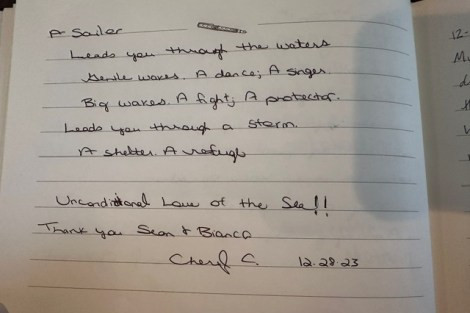 A Sailer
Leads you through the waters
Gentle waves. A dance; A singer.
Big waves. A fight; A protector.
Leads you through a storm.
A shelter. A refuge
Unconditional Love of the Sea!!
Thank you Sean & Bianca
Cheryl C. 12-28-23
12-